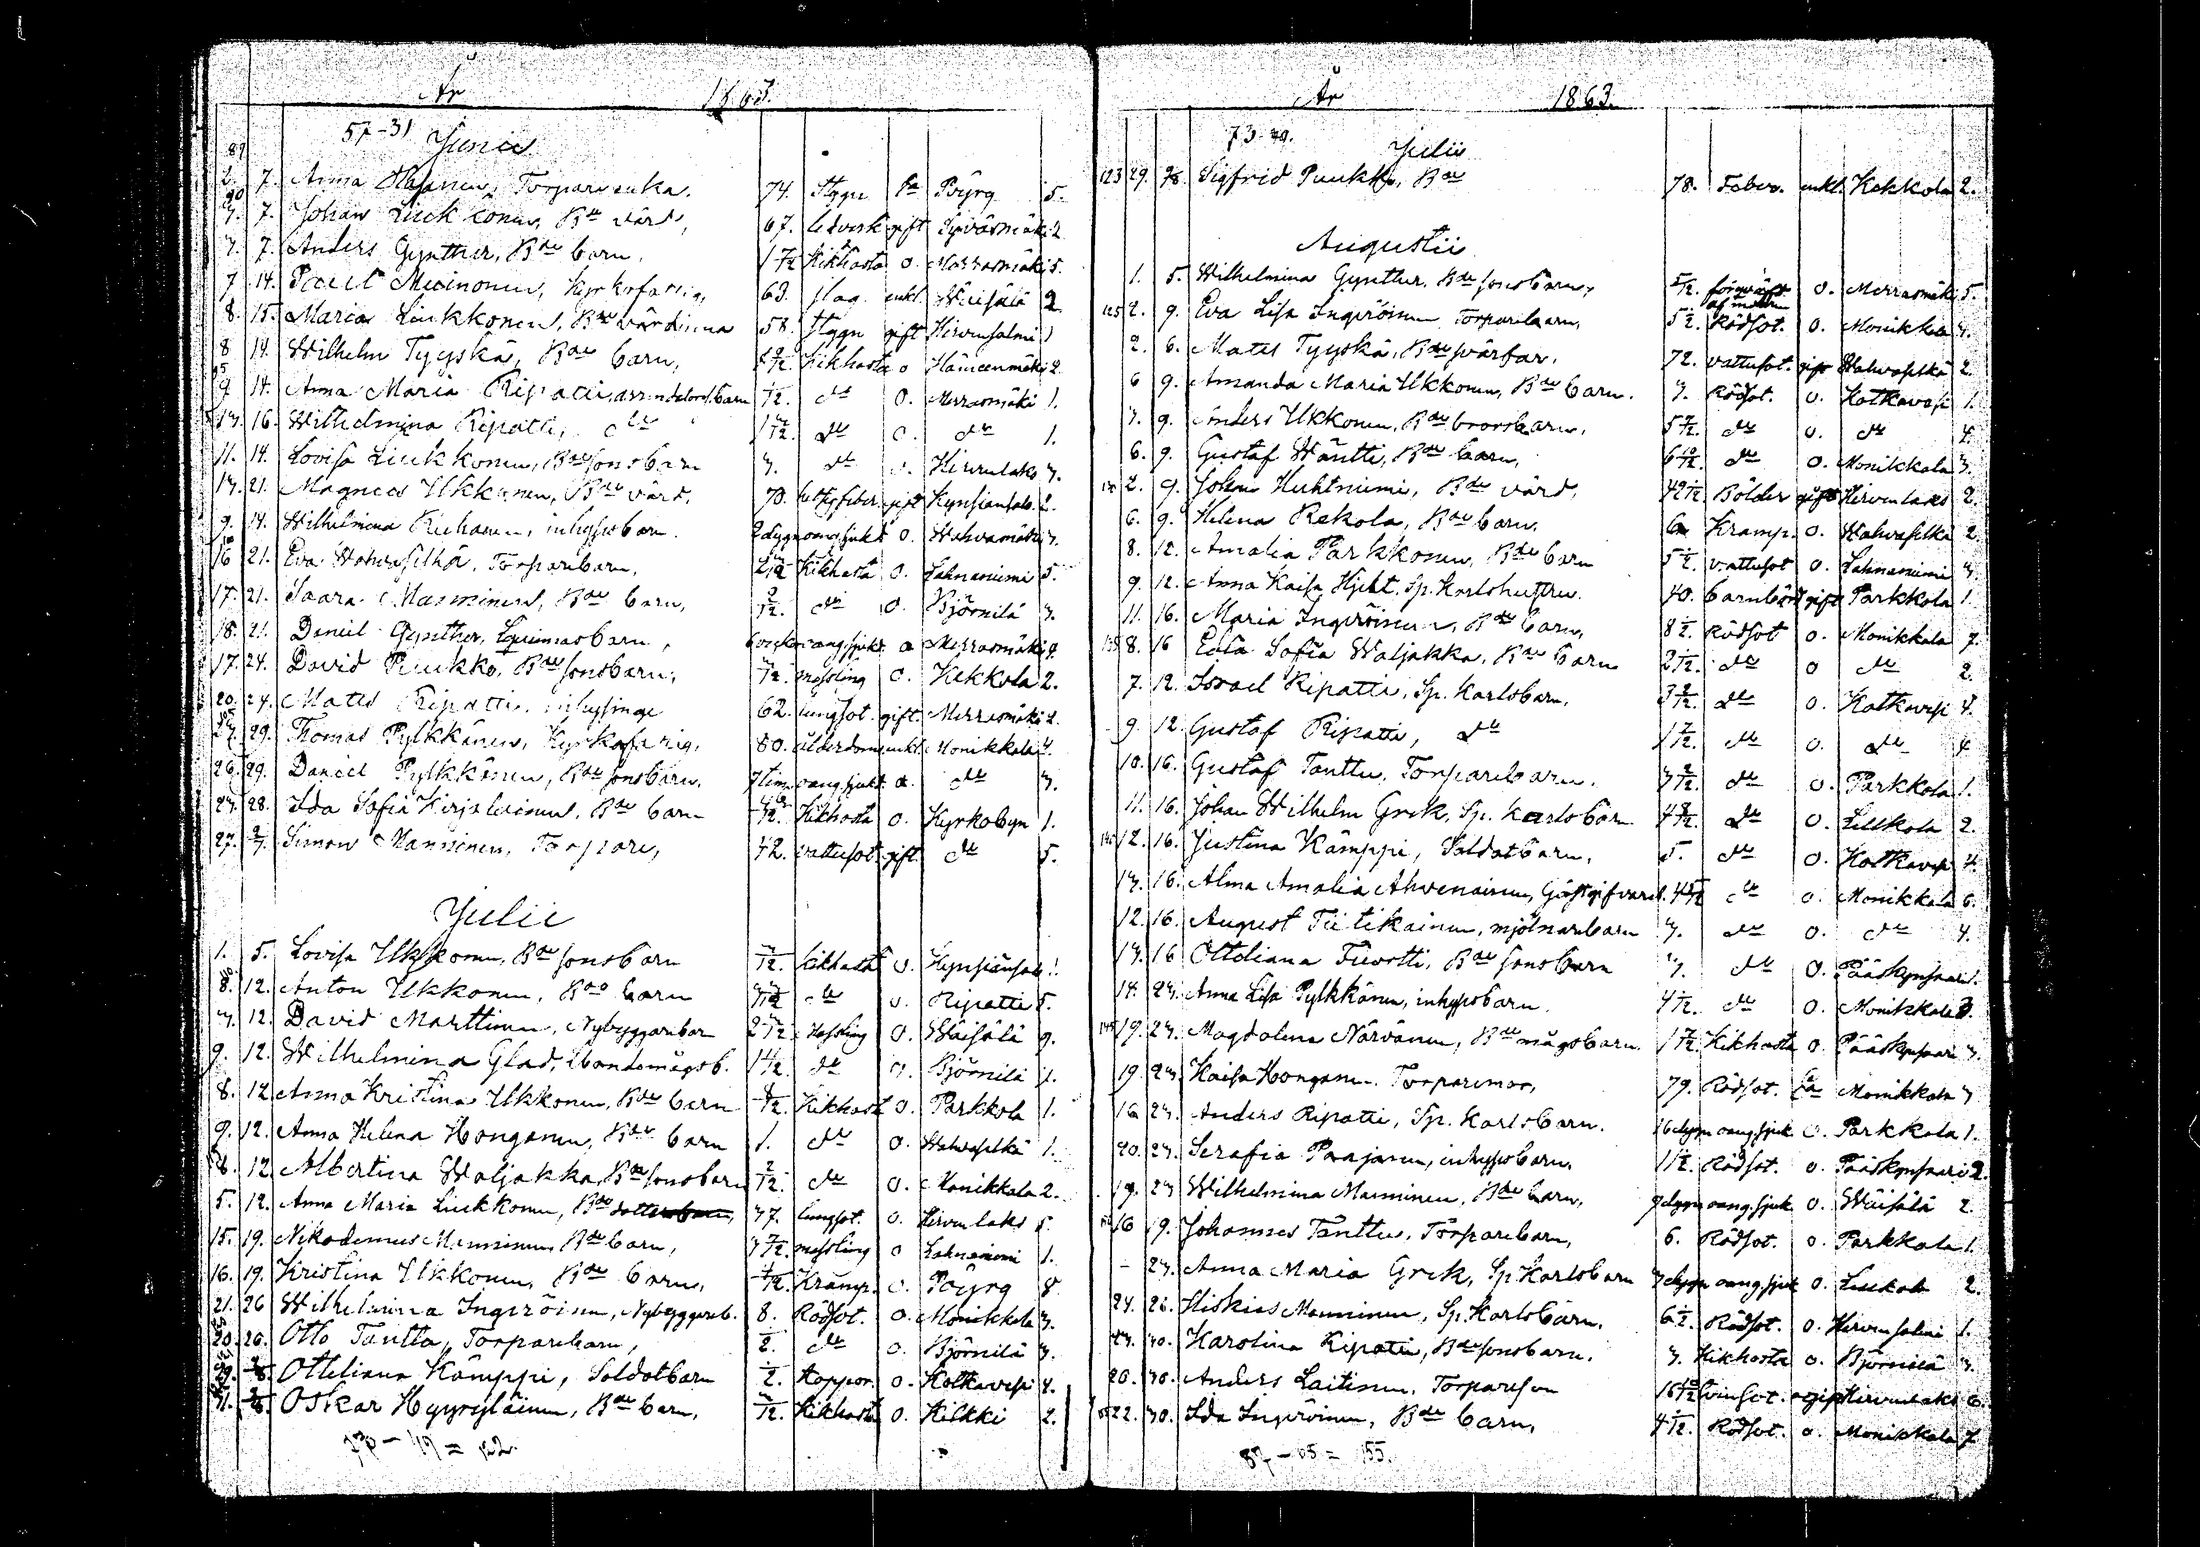 År 1863.
57-31 Junii
89
2. 7. Anna Torpare enka. 74. Stygn Ea Pöyrÿ 5.
90
7. 7. Johan Liukkonen, Bde värd, 67. gift 2
7. 7. Anders Gynther, Bde barn. 1 7/12 Kikhosta o. Merrasmäki 5.
7 14. Paul Kyrkofattig, 63. slag enkl. Wäisälä 2
8. 15. Maria Liukkonen, Bde värdinna 58. Stygn gift Hirvensalmi 1
8 14. Wilhelm Tyyskä, Bde barn, Kikhosta o Hämeenmäki 2
95
9 14. Anna Maria Ripatti, barn /12. do o. Merrasmäki 1.
13. 16. Wilhelmina Ripatti, do do o. do 1.
11. 14. Lovisa Liukkonen, Bde sonsbarn 3. do o. Hirvenlaks 3.
13. 21. Magnus Ukkonen, Bde värd, 70. gift 2.
9. 14. Wilhelmina inhysesbarn. 2 dygn o. Wahvamäki 3.
16 21. Eva Wahvaselkä, Torparebarn, Kikhosta o. Lahnaniemi 5.
17. 21. Saara Manninen, Bde barn, 2/12. do o. Björnilä 3.
18. 21. Daniel Gynther, barn, 6 veckor oang. sjukd. o Merrasmäki
17. 24. David Puukko, Bde sonsbarn, /12. messling o. Kekkola 2.
20. 24. Matts Ripatti, inhysinge 62. lungsot. gift. Merrasmäki 2.
27. 29. Thomas Pylkkänen, Kyrkofattig, 80. ålderdom enkl. Monikkala 4.
26. 29. Daniel Pylkkänen, Bde sonsbarn. 7 tim. oang. sjukd. o. do 3.
23. 28. Ida Sofia Bde barn Kikhosta o. Kyrkobyn 1.
27. 2/7. Simon Manninen, Torpare, 42. vattusot gift. do 5.
Julii
1. 5. Lovisa Ukkonen, Bde sonsbarn /12. kikhosta o. 1.
8. 12. Anton Ukkonen, Bde barn do o. Ripatti 5.
7. 12. David Marttinen, Nybyggarebar 2 /12 Messling o. Wäisälä 9.
9. 12. Wilhelmina Glad, b. 1 4/12. do o. Björnilä 1.
8. 12 Anna Kristina Ukkonen, Bde barn /12. Kikhosta o. Parkkola 1.
9. 12. Anna Helena Honganen, Bde barn 1. do o. Wahvaselkä 1.
8. 12 Albertina Waljakka, Bde sonsbarn 2/12. do o. Monikkala 2.
5. 12. Anna Maria Liukkonen, Bde dotterbarn, 37. lungsot. o. Hirvenlaks 5.
15. 19. Nikodemus Manninen Bde barn, 3 7/12 messling o Lahnaniemi 1.
16. 19. Kristina Ukkonen, Bde barn, /12. Kramp. o. Pöyrÿ 8.
21. 26 Wilhelmina Ingeröinen, Nybyggareb. 8. Rödsot. o. Monikkala 3.
20. 26. Otto Tanttu, Torparebarn, 1/2. do o. Björnilä 3.
29. 2/8 Ottiliana Kämppi, Soldatbarn 1/2. Koppor. o. Kotkavesi 4.
31. 2/8. Oskar Hyyryläinen, Bde barn, /12. Kikhosta o. Kilkki 2.
73 - 49 = 122
År 1863.
73-49. Julii
123 29. 2/8. Sigfrid Puukko, Bde 78. Feber. enkl. Kekkola 2.
Augustii
1. 5. Wilhelmina Gynther, Bde sonsbarn, 5/12. af modren o. Merrasmäki 5.
125 2. 9. Eva Lisa Ingeröinen Torparebarn, 5 1/2. Rödsot. o. Monikkala 7.
2. 6. Matts Tyyskä, Bde svärfar. 72. vattusot. gift Wahvaselkä 2.
6 9. Amanda Maria Ukkonen, Bde barn. 3. Rödsot. o. Kotkavesi 1.
7. 9. Anders Ukkonen, Bde brorsbarn. 5 /12. do o. do 4.
6. 9. Gustaf Wäntti, Bde barn, 6 /12. do o. Monikkala 3.
130 2. 9. Johan Huhtniemi, Bde värd, 42 /12 Bölder gift Hirvenlaks 2.
6. 9. Helena Rekola, Bde barn. 6 Kramp. o. Wahvaselkä 2.
8. 12. Amalia Parkkonen, Bde barn 5 1/2. vattusot o. Lahnaniemi 3.
9. 12. Anna Kaisa Hjelt, Sp. Karlshustru. 40. barnbörd gift Parkkola 1.
11. 16. Maria Ingeröinen, Bde barn, 8 1/2. Rödsot o. Monikkala 7.
135 8. 16 Eda Sofia Waljakka, Bde barn 2 /12. do o do 2.
7. 12. Israel Ripatti, Sp. Karlsbarn. 3 2/12. do o. Kotkavesi 4.
9. 12. Gustaf Ripatti, do 1 7/12. do o. do 4
10. 16. Gustaf Tanttu, Torparebarn. 3 2/12. do o. Parkkola 1.
11. 16. Johan Wilhelm Grek, Sp. Karlsbarn 4 8/12. do o. 2.
140 12. 16. Justina Kämppi, Soldatbarn, 5. do o. Kotkavesi 4.
13. 16. Alma Amalia Ahvenainen, Gästgifvareb. 4 /12 do o. Monikkala 6.
12. 16. August Tiitikainen, mjölnarebarn 3. do o. do 4.
13. 16 Ottoliana Bde sonsbarn 3. do o. Pääskynsaari 1.
14. 23. Anna Lisa Pylkkänen, inhysesbarn. 4 /12. do o. Monikkala 3.
145 19. 23. Magdalena Närvänen, Bde mågsbarn. 1 7/12. Kikhosta o. Pääskynsaari 3.
19. 23. Kaisa Honganen Torparemor, 79. Rödsot. Ea Monikkala 3
16 23. Anders Ripatti, Sp. Karlsbarn. 16 dygn oang. sjuk. o. Parkkola 1.
20. 23. Serafia Paajanen, inhysesbarn. 1 1/2. Rödsot. o. Pääskynsaari 2.
19. 23 Wilhelmina Manninen, Bde barn, 9 dygn oang. sjuk. o. Wäisälä 2.
150 16 19. Johannes Tanttu, Torparebarn, 6. Rödsot. o. Parkkala 1.
- 23. Anna Maria Grek, Sp. Karlsbarn 3 dygn oang. sjuk o. 2.
24. 26. Hiskias Manninen, Sp. Karlsbarn. 6 1/2. Rödsot. o. Hirvensalmi 1.
23. 30. Karolina Ripatti, Bde sonsbarn. 3. Kikhosta o. Björnilä 3.
20. 30. Anders Laitinen, Torpareson 16 /12 ogift Hirvenlaks 6.
155 22. 30. Ida Ingeröinen, Bde barn, 4 /12. Rödsot. o. Monikkala 7
= 155.